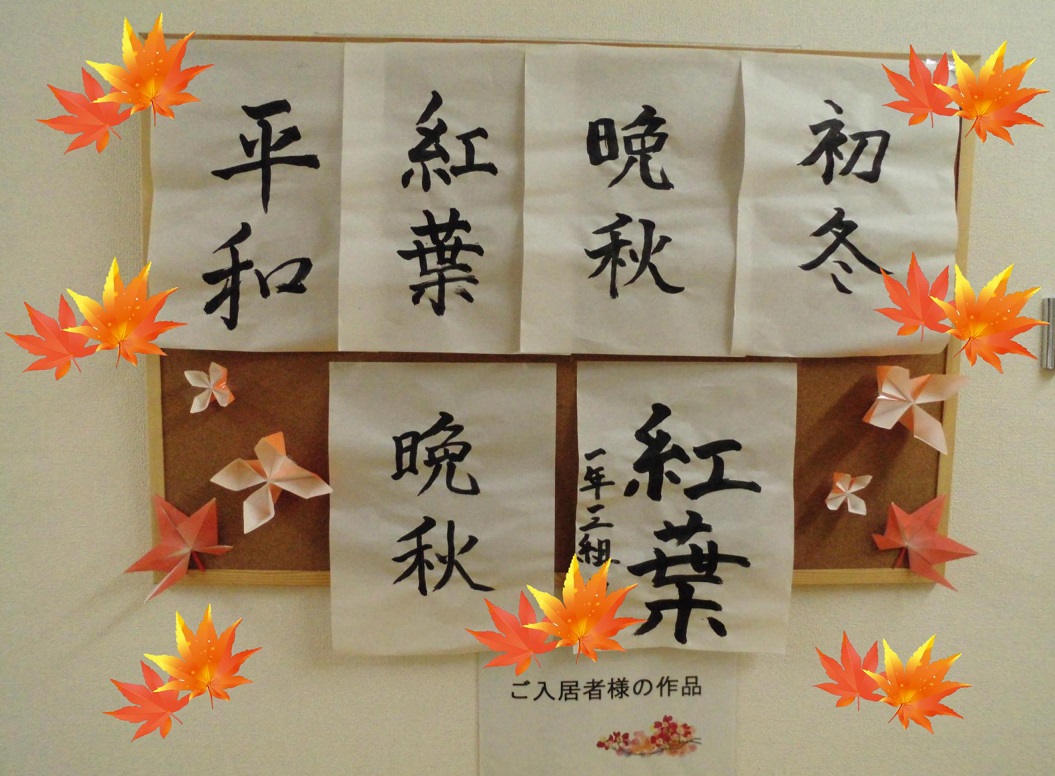 初冬
晩秋
紅葉
平和
紅葉
一年二組
晩秋
ご入居者様の作品